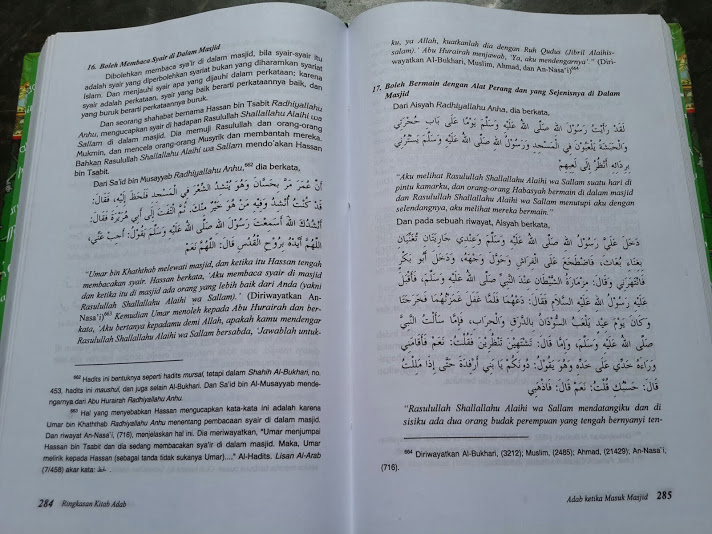 16. Boleh Membaca Syair di Dalam Masjid
Dibolehkan membaca sya'ir di dalam masjid, bila syair-syair itu
adalah syair yang diperbolehkan syariat bukan yang diharamkan syariat
Islam. Dan menjauhi syair apa yang dijauhi dalam perkataan; karena
syair adalah perkataan, syair yang baik berarti perkataannya baik, dan
yang buruk berarti perkataannya buruk.
Dan seorang shahabat bernama Hassan bin Tsabit Radhiyallahu
Anhu, mengucapkan syair di hadapan Rasulullah Shallallahu Alaihi wa
Sallam di dalam masjid. Dia memuji Rasulullah dan orang-orang
Mukmin, dan mencela orang-orang Musyrik dan membantah mereka.
Bahkan Rasulullah Shallallahu Alaihi wa Sallam mendo'akan Hassan
bin Tsabit.
Dari Sa'id bin Musayyab Radhiyallahu Anhu,662 dia berkata,
أَنَّ عُمَرَ مَرَّ بِحَسَّانَ وَهُوَ يُنْشِدُ الشِّعْرَ فِي الْمَسْجِدِ فَلَحَظَ إِلَيْهِ، فَقَالَ:
قَدْ كُنْتُ أُنْشِدُ وَفِيْهِ مَنْ هُوَ خَيْرٌ مِنْكَ. ثُمَّ الْتَفَتَ إِلَى أَبِي هُرَيْرَةَ فَقَالَ:
أَنْشُدُكَ اللَّهَ أَسَمِعْتَ رَسُوْلَ اللَّهِ صَلَّى اللَّهُ عَلَيْهِ وَسَلَّمَ يَقُوْلُ: أَجِبْ عَنِّي،
اللَّهُمَّ أَيِّدْهُ بِرُوْحِ الْقُدُسِ قَالَ: اللَّهُمَّ نَعَمْ
"Umar bin Khaththab melewati masjid, dan ketika itu Hassan tengah
membacakan syair. Hassan berkata, 'Aku membaca syair di masjid
dan ketika itu di masjid ada orang yang lebih baik dari Anda (yakni
Rasulullah Shallallahu Alaihi wa Sallam).' (Diriwayatkan An-
Nasa'i)663 Kemudian Umar menoleh kepada Abu Hurairah dan ber-
kata, 'Aku bertanya kepadamu demi Allah, apakah kamu mendengar
Rasulullah Shallallahu Alaihi wa Sallam bersabda, 'Jawablah untuk-
662 Hadits ini bentuknya seperti hadits mursal, tetapi dalam Shahih Al-Bukhari, no.
453, hadits ini maushul, dan juga selain Al-Bukhari. Dan Sa'id bin Al-Musayyab mende-
ngarnya dari Abu Hurairah Radhiyallahu Anhu.
663 Hal yang menyebabkan Hassan mengucapkan kata-kata ini adalah karena
Umar bin Khaththab Radhiyallahu Anhu menentang pembacaan syair di dalam masjid.
Dan riwayat An-Nasa'i, (716), menjelaskan hal ini. Dia meriwayatkan, "Umar menjumpai
Hassan bin Tsabit dan dia sedang membacakan sya'ir di dalam masjid. Maka, Umar
melirik kepada Hassan (sebagai tanda tidak sukanya Umar)...." Al-Hadits. Lisan Al-Arab
(7/458) akar kata:
284 Ringkasan Kitab Adab
ku, ya Allah, kuatkanlah dia dengan Ruh Qudus (Jibril Alaihis-
salam).' Abu Hurairah menjawab, 'Ya, aku mendengarnya'." (Diri-
wayatkan Al-Bukhari, Muslim, Ahmad, dan An-Nasa'i)664
17. Boleh Bermain dengan Alat Perang dan yang Sejenisnya di Dalam
Masjid
Dari Aisyah Radhiyallahu Anha, dia berkata,
لَقَدْ رَأَيْتُ رَسُوْلَ اللَّهِ صَلَّى اللَّهُ عَلَيْهِ وَسَلَّمَ يَوْمًا عَلَى بَابِ حُجْرَتِي
وَالْحَبَشَةُ يَلْعَبُوْنَ فِي الْمَسْجِدِ وَرَسُوْلُ اللَّهِ صَلَّى اللَّهُ عَلَيْهِ وَسَلَّمَ يَسْتُرُنِي
بِرِدَائِهِ أَنْظُرُ إِلَى لَعِبِهِمْ
"Aku melihat Rasulullah Shallallahu Alaihi wa Sallam suatu hari di
pintu kamarku, dan orang-orang Habasyah bermain di dalam masjid
dan Rasulullah Shallallahu Alaihi wa Sallam menutupi aku dengan
selendangnya, aku melihat mereka bermain."
Dan pada sebuah riwayat, Aisyah berkata,
دَخَلَ عَلَيَّ رَسُوْلُ اللَّهِ صَلَّى اللَّهُ عَلَيْهِ وَسَلَّمَ وَعِنْدِي جَارِيَتَانِ تُغَنِّيَانِ
بِغِنَاءِ بُعَاثَ، فَاضْطَجَعَ عَلَى الْفِرَاشِ وَحَوَّلَ وَجْهَهُ، وَدَخَلَ أَبُوْ بَكْرٍ
فَانْتَهَرَنِي وَقَالَ: مِزْمَارَةُ الشَّيْطَانِ عِنْدَ النَّبِيِّ صَلَّى اللَّهُ عَلَيْهِ وَسَلَّمَ، فَأَقْبَلَ
عَلَيْهِ رَسُوْلُ اللَّهِ عَلَيْهِ السَّلَامُ فَقَالَ: دَعْهُمَا فَلَمَّا غَفَلَ غَمَزْتُهُمَا فَخَرَجَتَا
وَكَانَ يَوْمَ عِيْدٍ يَلْعَبُ السُّوْدَانُ بِالدَّرَقِ وَالْحِرَابِ، فَإِمَّا سَأَلْتُ النَّبِيَّ
صَلَّى اللَّهُ عَلَيْهِ وَسَلَّمَ، وَإِمَّا قَالَ: تَشْتَهِيْنَ تَنْظُرِيْنَ فَقُلْتُ: نَعَمْ فَأَقَامَنِي
وَرَاءَهُ خَدِّي عَلَى خَدِّهِ وَهُوَ يَقُوْلُ: دُوْنَكُمْ يَا بَنِي أَرْفِدَةَ حَتَّى إِذَا مَلِلْتُ
قَالَ: حَسْبُكِ قُلْتُ: نَعَمْ قَالَ: فَاذْهَبِي
"Rasulullah Shallallahu Alaihi wa Sallam mendatangiku dan di
sisiku ada dua orang budak perempuan yang tengah bernyanyi ten-
664 Diriwayatkan Al-Bukhari, (3212); Muslim, (2485); Ahmad, (21429); An-Nasa'i,
(716).
Adab ketika Masuk Masjid 285